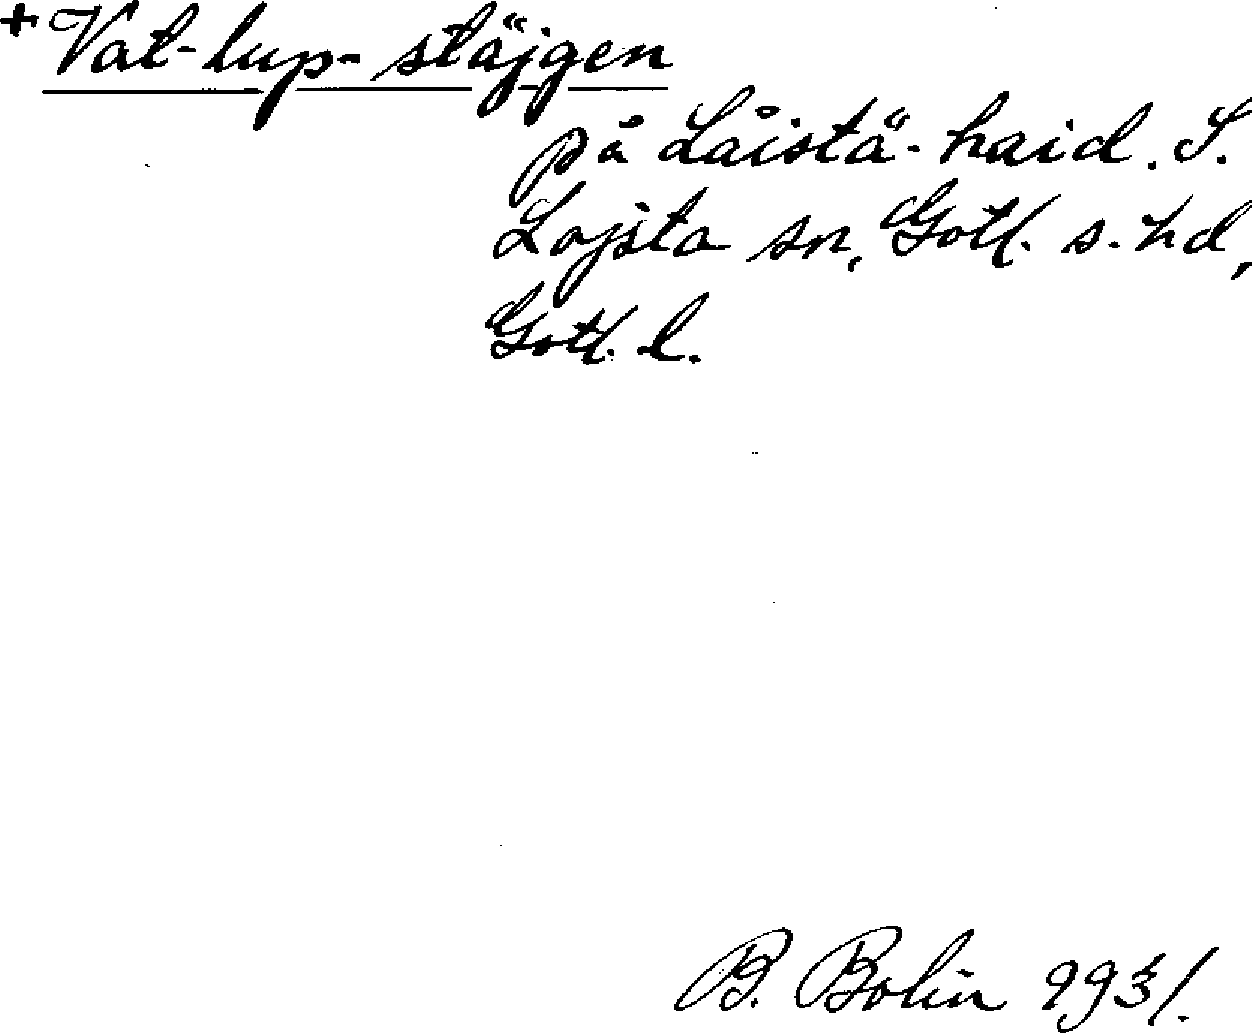 + Vat-lup-stäjgen
på Låistä-haid. S.
Lojsta sn, Gotl. s. hd,
Gotl. l.
B. Bolin